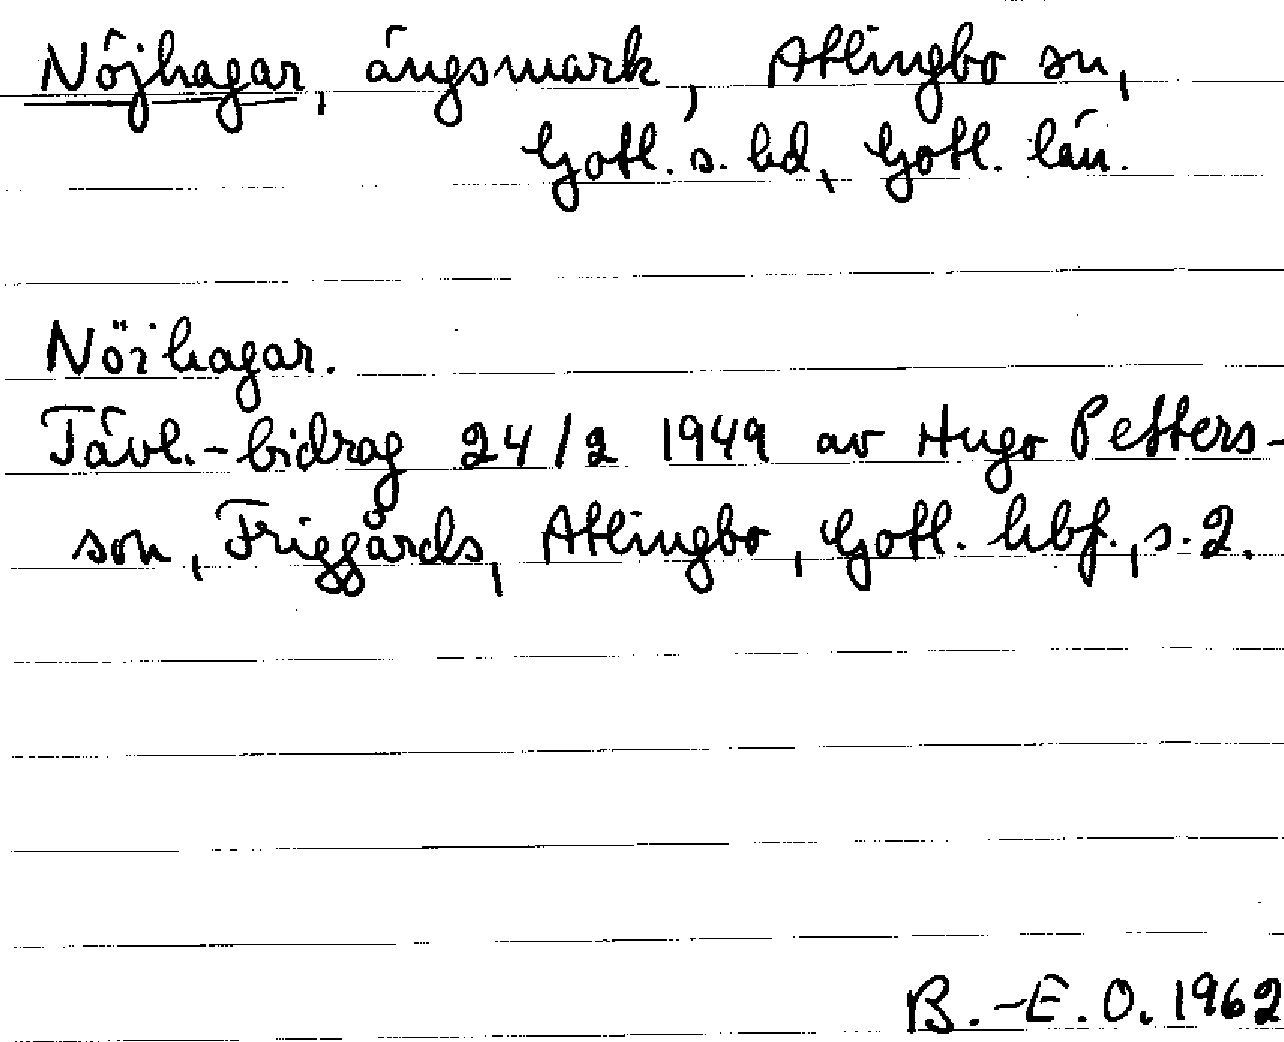 Nöjhagar, ängsmark, Atlingbo sn,
Gotl. s. hd, Gotl. län.
Nöihagar.
Tävl.-bidrag 24/2 1949 av Hugo Petters-
son, Friggårds, Atlingbo, Gotl. hbf., s. 2.
B.-E. O. 1962